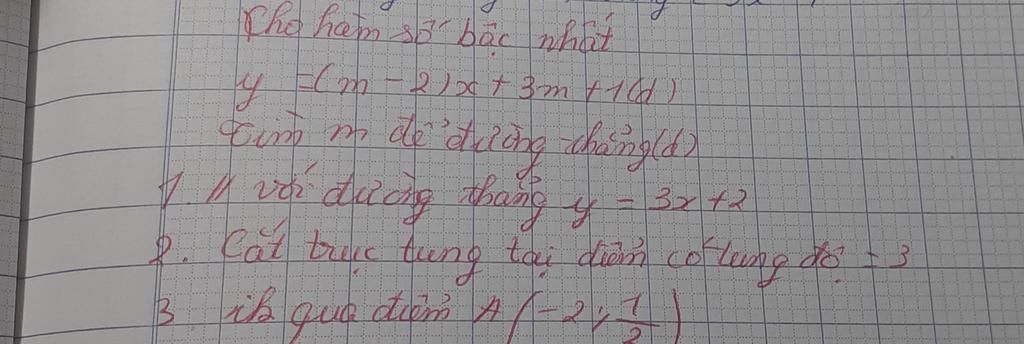 Cho hàm số bậc nhất
y = (m - 2)x + 3m + 1 (d)
tìm m để đường thẳng (d)
1. // với đường thẳng y = 3x + 2
2. Cắt trục tung tại điểm có tung độ = 3
3 qua điểm A (-2; 1/2)